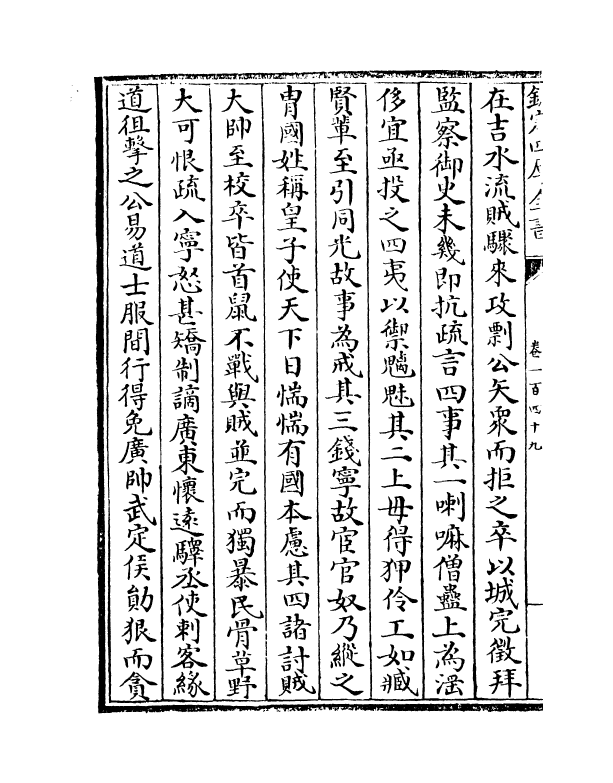 欽定四庫全書
卷一百四十九
在吉水流賊驟來攻剽公矢衆而拒之卒以城完徵拜
監察御史未幾即抗疏言四事其一喇嘛僧蠱上為滛
侈宜亟投之四夷以禦魑魅其二上毋得狎伶工如臧
賢輩至引同光故事為戒其三錢寧故宦官奴乃縱之
冑國姓稱皇子使天下日惴惴有國本慮其四諸討賊
大帥至校卒皆首鼠不戰與賊並完而獨暴民骨草野
大可恨疏入寧怒甚矯制謫廣東懷遠驛丞使刺客緣
道徂擊之公易道士服間行得免廣帥武定侯勛狠而貪